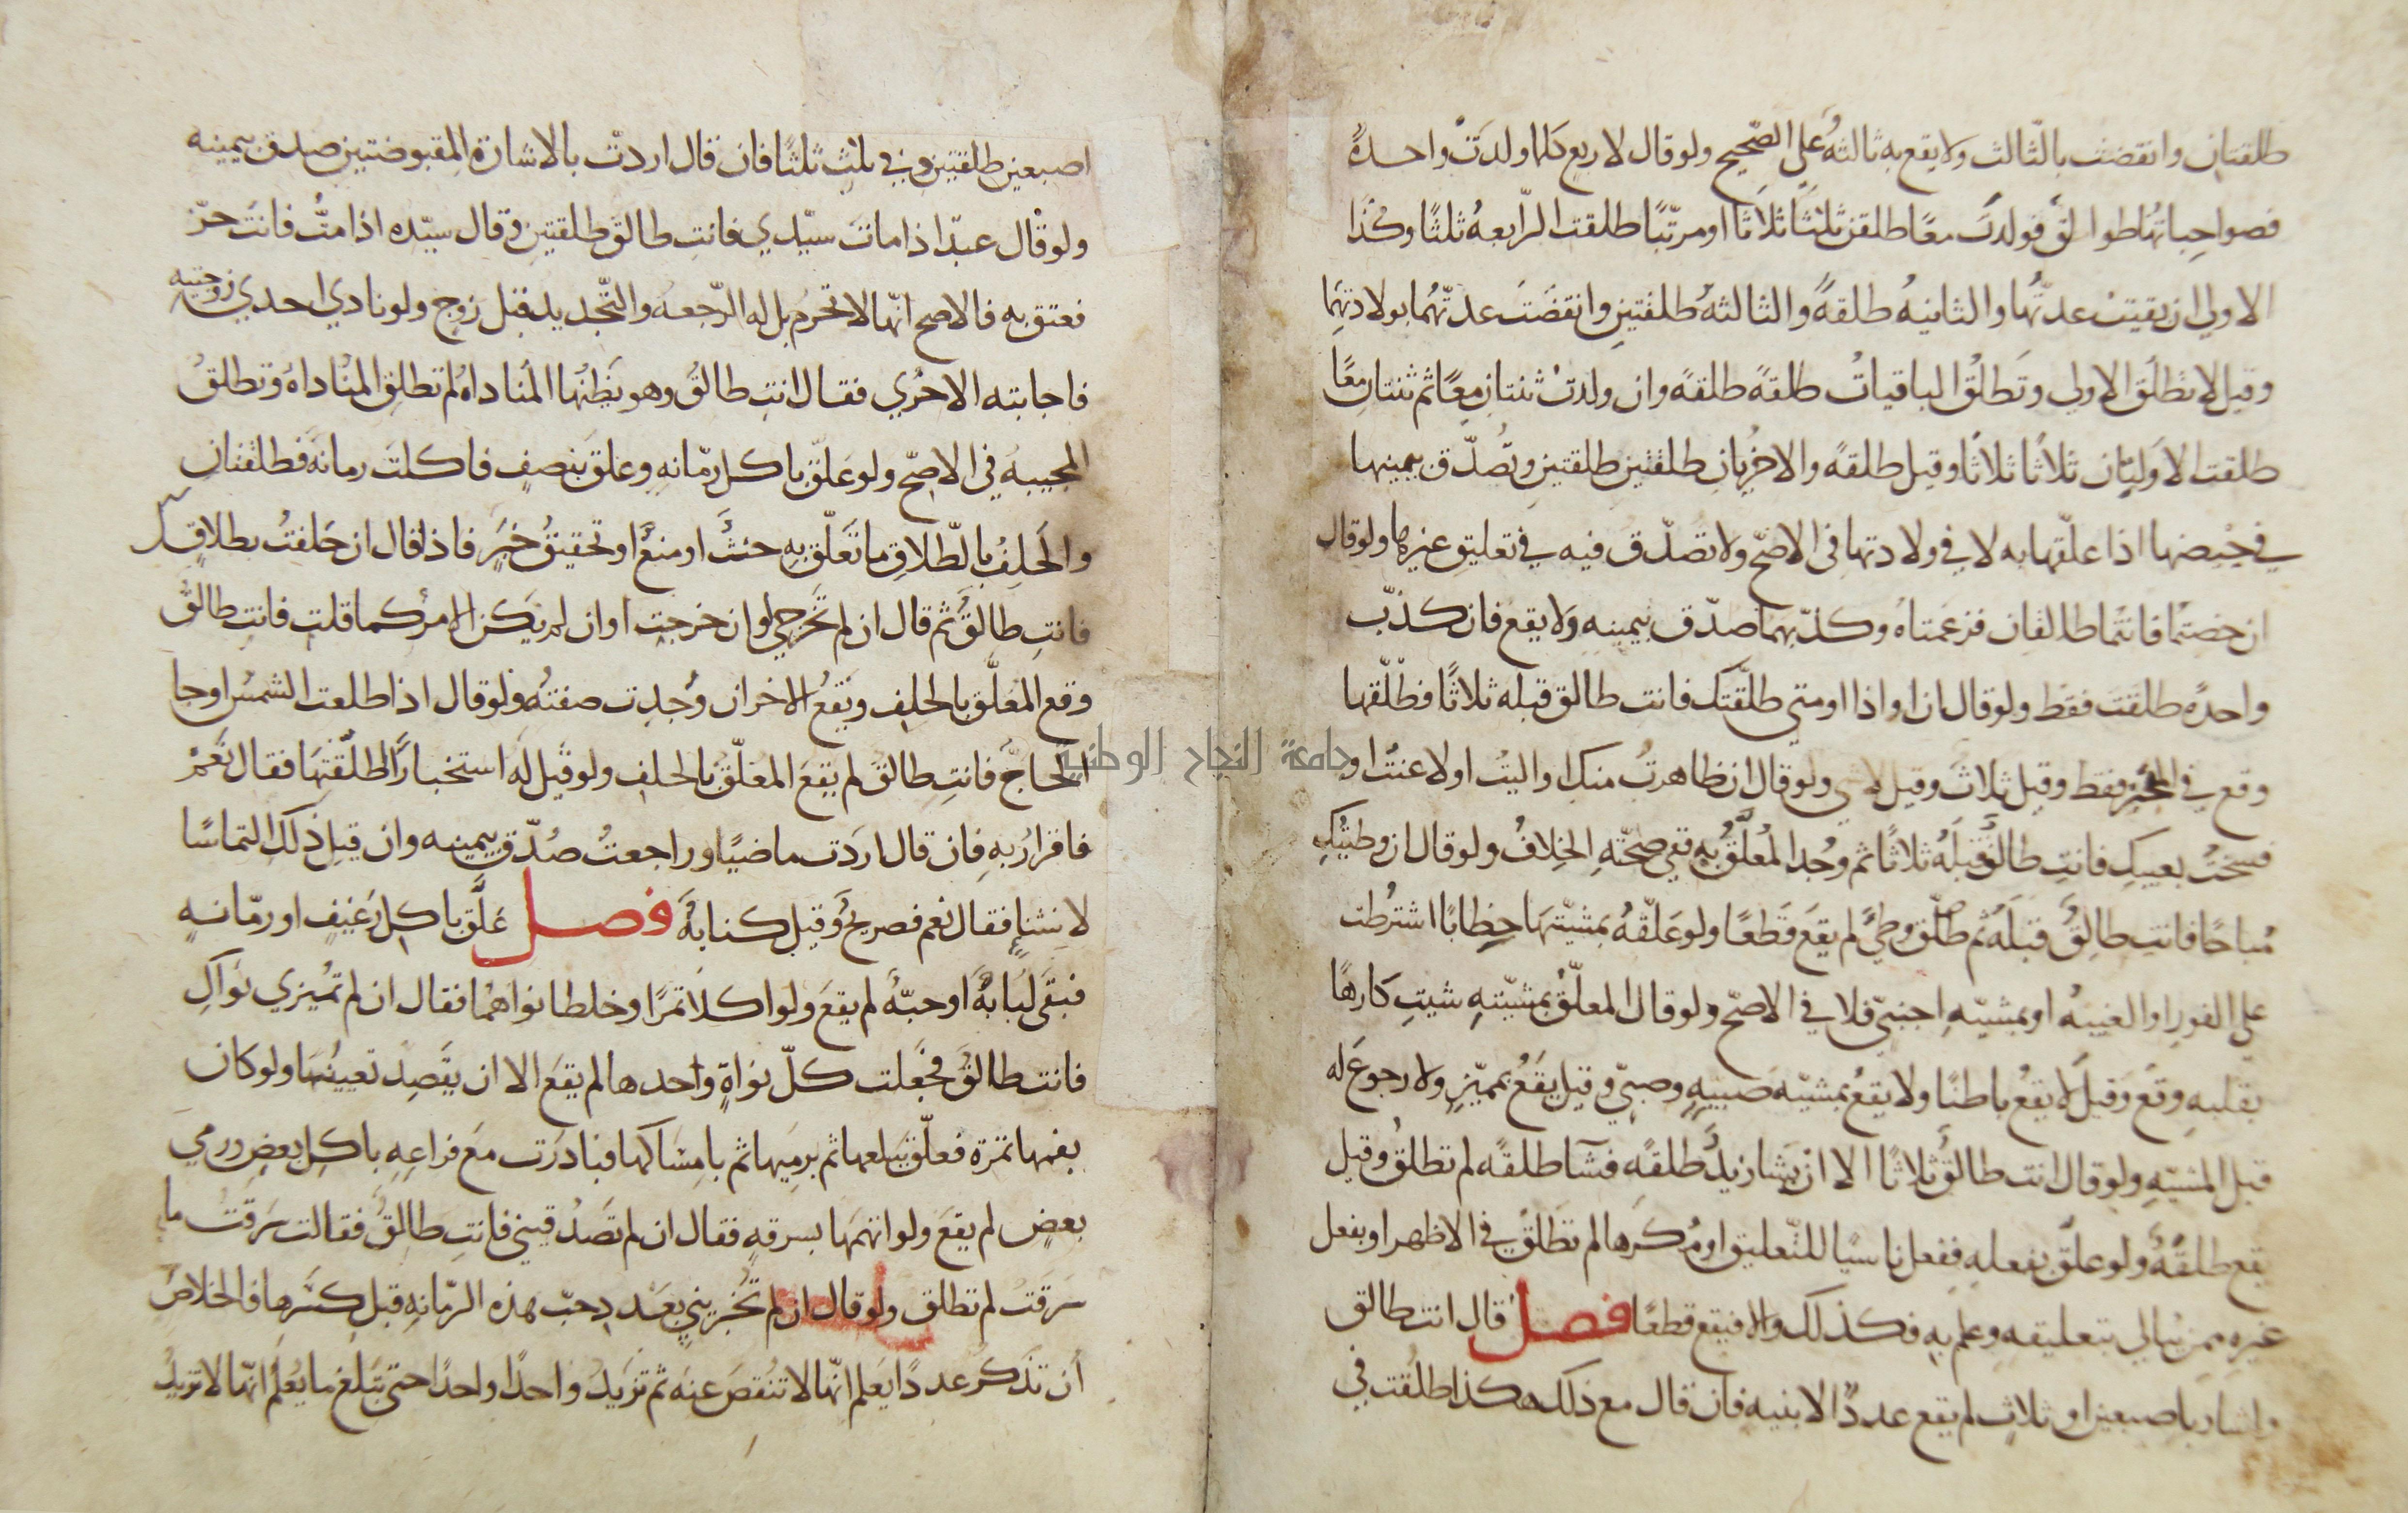 طلقتان وانقضت بالثالث ولا يقع به ثالثةٌ على الصحيح ولو قال لاربع كلما ولدَتْ واحدةٌ
فصواحِباتُها طوالقٌ فولدنَ معًا طلقن ثلثًا ثلاثا او مرتّبًا طلقت الرّابعهُ ثلثًا وكذا
الاولى ان بقيتْ عدتُّها والثانيهُ طلقةً والثالثهُ طلقتينِ وانقضَت عدتُّهُما بولادتهِمَا
وقيل لا تطلَق الاولى وتَطلُقُ الباقياتُ طلقةً طلقةً وان ولدتْ ثنتانِ معًا ثم ثنتانِ معًا
طلقت الاوليان ثلاثًا ثلاثًا وقيل طلقةً والاخريان طلقتين طلقتينِ وتُصدّق بيمينها
في حيضها اذا علّقها به لا في ولادتها في الاصّح ولا تصدّق فيه في تعليقِ غيرها ولو قال
ان حضتما فانتما طالقان فزعمتاهُ وكذّبهما صدّق بيمينه ولا يقع فان كذبّ
واحدةً طلقَت فقط ولو قال ان او اذا او متى طلّقتك فانت طالق قبله ثلاثًا فطلّقها
وقع في المنجّز فقط وقيل ثلاث وقيل لا شي ولو قال ان ظاهرتُ منك او اليتُ او لاعنتُ او
فسختُ بعيبكِ فانتِ طالقٌ قبلهُ ثلاثًا ثم وجُد المُعلَّقُ به ففي صحّتهِ الخِلافُ ولو قال ان وطيتُكِ
مُباحًا فانتِ طالقٌ قبلَهُ ثم وطئَ لم يقَع قَطعًا ولو عَلّقهُ بمشيّتهَا خِطابًا اشترُطت
على الفورِ او الغيبهُ او بمشيّهِ اجنبّي فلا في الاصّح ولو قال المعلّقُ بمشيّتهِ شيتِ كارهًا
بقلبهِ وقَع وقيلَ لا يقعُ باطنًا ولا يقعُ بمشيّه صَبيّهٍ وصبيّ وقيل يقَعُ بمميّزٍ ولا رجوعَ له
قبل المشيّهِ ولو قال انت طالقٌ ثلاثًا الا انْ يشا زيدٌ طلقةً فشآ طلقةً لم تطلقُ وقيل
يقع طلقةٌ ولو علّق بفعلهِ ففعل ناسيًا للتّعليق او مُكرَها لم تَطلُق في الاظهر او بفعل
غيرِه ممن يُبالي بتعليقه وعلم بهِ فكذلك والا فيقع قطعًا فصل قال انت طالق
واشار باصبعين او ثلاثٍ لم يقع عددٌ الا بنيه فان قال مع ذلك هكذا طلقت في
اصبعين طلقتين وفي ثلثٍ ثلثًا فان قال اردتُ بالاشارةِ المقبوضتين صدق بيمينه
ولو قال عبدٌ اذا ماتَ سيّدي فانتِ طالق طلقتينِ وقال سيّده اذا متُّ فانتَ حرّ
فعتق به فالاصح انّها لا تحرمُ بل له الرّجعه والتّجديد قبل زوج ولو نادى احدي زوجتيه
فاجابته الاخري فقال انتِ طالقٌ وهو يَظنُّها المُناداةُ لم تطلق المُناداةُ وتطلقُ
المجيبهُ في الاصّح ولو عَلّق باكل رمّانهِ وعلق بنصفٍ فاكلتَ رمانةً فطلقتان
والحَلِفُ بالطّلاقِ ما تَعَلّق بهِ حثٌّ او منعٌ او تحقيقُ خبَرٍ فاذا قال ان حَلفتُ بطلاقٍك
فانتِ طالقٌ ثم قال ان لم تَخرجي او ان خرجتِ او ان لم يكن الامرُ كما قلتِ فانتِ طالقٌ
وقع المُعلَّق بالحلفِ ويَقعُ الاخر ان وُجدت صفتُه ولو قال اذا طلعت الشمسُ او جا
الحاجّ فانتِ طالقٌ لم يقعَ المعلّقُ بالحلفِ ولو قيل لهُ استخبارًا اطلّقتَهَا فقال نَعَمْ
فاقرارٌ بهِ فان قال اردَت ماضيًا وراجعتُ صُدّق بيمينه وان قيل ذلكَ التماسًا
لانشاءٍ فقال نعم فصريحٌ وقيل كنايةٌ فصل عَلَّق باكلِ رَغيفٍ او رمّانهٍ
فبقَى لُبابةٌ او حبّةٌ لم يقعَ ولو اكلا تمرًا وخلطا نواهُما فقال ان لم تُميّزي نَواكِ
فانت طالقٌ فجَعلت كلّ نواةٍ واحدها لم يقعَ الا ان يقَصِدَ تعيينُهَا ولو كان
بفمها تمرة فعلّق ببَلعها ثم برميها ثم بامِسَاكها فبادرَت مَعَ فراغِهِ باكلِ بعضٍ ورمي
بعضٍ لم يقعَ ولو اتهمَها بسرقهٍ فقال ان لم تَصَدُقيني فانتِ طالقٌ فقالت سَرقتُ ما
سَرَقتُ لم تطلق ولو قال ان لم تُخبريني بعَدد حبّ هذه الرّمانهِ قبل كَسَرها فالخلاصُ
أن تذكُر عددًا يَعلم انّها لا تنُقصَ عنهَ ثم تَزيدُ واحدًا واحدًا حتي تبلغَ ما يُعلَم انّها لا تزيدُ
جامعة النجاح الوطنية